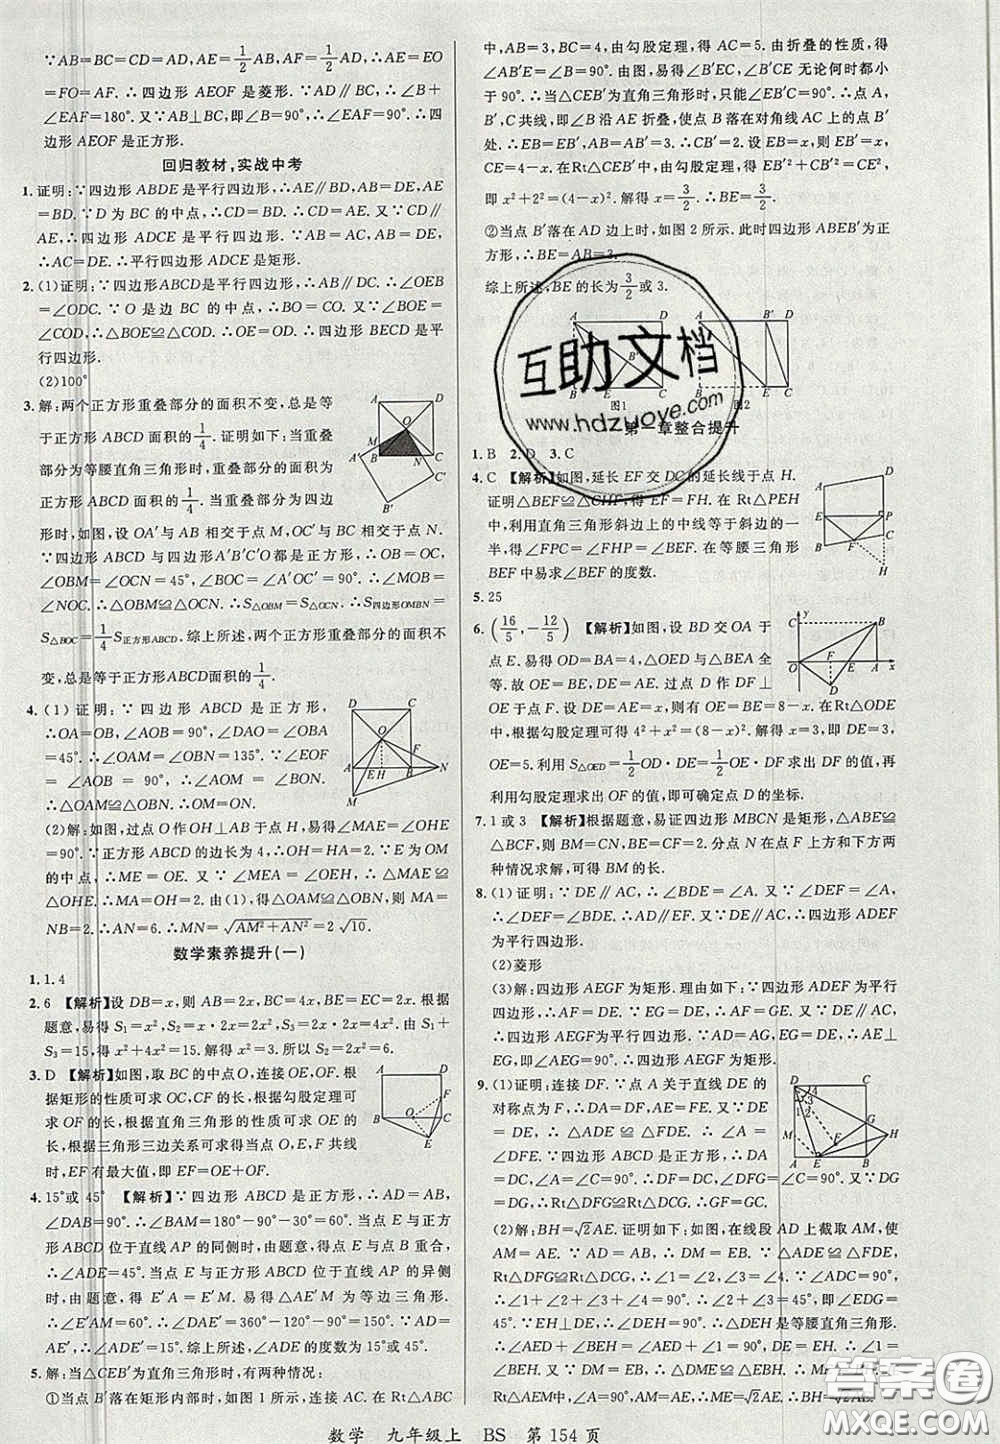 ∵AB=BC=CD=AD,AE=1/2AB,AF=1/2AD,∴AE=EO
=FO=AF.∴四边形AEOF是菱形.∵AB∥AD,∴∠B+
∠EAF=180°.又∵AB⊥BC,即∠B=90°,∴∠EAF=90°.∴四
边形AEOF是正方形.
回归教材,实战中考
1.证明:∵四边形ABDE是平行四边形,∴AE∥BD,AB=DE,AE
=BD.∵D为BC的中点,∴CD=BD.∴CD=AE.又∵CD∥
AE,∴四边形ADCE是平行四边形.∵AB=AC,AB=DE,
∴AC=DE.∴平行四边形ADCE是矩形.
2.(1)证明:∵四边形ABCD是平行四边形,∴AB∥DC.∴∠OEB
=∠ODC.又∵O为BC的中点,∴BO=CO.又∵∠BOE=
∠COD,∴△BOE≌△COD.∴OE=OD.∴四边形BECD是平
行四边形.
(2)100°
3.解:两个正方形重叠部分的面积不变,总是等
于正方形ABCD面积的1/4.证明如下:当重叠
部分为等腰直角三角形时,重叠部分的面积为
正方形ABCD面积的1/4;当重叠部分为四边
形时,如图,设OA′与AB相交于点M,OC′与BC相交于点N.
∵四边形ABCD与四边形A′B′C′O都是正方形,∴OB=OC,
∠OBM=∠OCN=45°,∠BOC=∠A′OC′=90°.∴∠MOB=
∠NOC.∴△OBM≌△OCN.∴S△OBM=S△OCN.∴S四边形OMBN=
S△BOC=1/4S正方形ABCD.综上所述,两个正方形重叠部分的面积不
变,总是等于正方形ABCD面积的1/4.
4.(1)证明:∵四边形ABCD是正方形,
∴OA=OB,∠AOB=90°,∠DAO=∠OBA
=45°.∴∠OAM=∠OBN=135°.∵∠EOF
=∠AOB=90°,∴∠AOM=∠BON.
∴△OAM≌△OBN.∴OM=ON.
(2)解:如图,过点O作OH⊥AB于点H,易得∠MAE=∠OHE
=90°.∵正方形ABCD的边长为4,∴OH=HA=2.∵E为OM
的中点,∴ME=OE.又∵∠MEA=∠OEH,∴△MAE≌
△OHE.∴MA=OH=2.由(1),得△OAM≌△OBN,则BN=
MA=2.∴AN=6.∴MN=√(AM²+AN²)=2√10.
数学素养提升(一)
1.1.4
2.6 【解析】设DB=x,则AB=2x,BC=4x,BE=EC=2x.根据
题意,易得S₁=x²,S₂=x·2x=2x²,S₃=2x·2x=4x².由S₁+
S₃=15,得x²+4x²=15.解得x²=3.所以S₂=2x²=6.
3.D 【解析】如图,取BC的中点O,连接OE,OF,根
据矩形的性质可求OC,CF的长,根据勾股定理可
求OF的长,根据直角三角形的性质可求OE的
长,根据三角形三边关系可求得当点O,E,F共线
时,EF有最大值,即EF=OE+OF.
4.15°或45° 【解析】∵四边形ABCD是正方形,∴AD=AB,
∠DAB=90°.∴∠BAM=180°-90°-30°=60°.当点E与正方
形ABCD位于直线AP的同侧时,由题意,得点E与点B重合,
∴∠ADE=45°.当点E与正方形ABCD位于直线AP的异侧
时,由题意,得E′A=E′M.易得△AE′M为等边三角形.
∴∠E′AM=60°.∴∠DAE′=360°-120°-90°=150°.∵AD=
AE′,∴∠ADE′=15°.综上所述,∠ADE的度数为15°或45°.
5.解:当△CEB′为直角三角形时,有两种情况:
①当点B′落在矩形内部时,如图1所示,连接AC.在Rt△ABC
中,AB=3,BC=4,由勾股定理,得AC=5.由折叠的性质,得
∠AB′E=∠B=90°.由图,易得∠B′EC,∠B′CE无论何时都小
于90°.∴当△CEB′为直角三角形时,只能∠EB′C=90°.∴点A,
B′,C共线,即∠B沿AE折叠,使点B落在对角线AC上的点B′
处.∴EB=EB′,AB=AB′=3.∴CB′=5-3=2.设BE=x,则EB′
=x,CE=4-x.在Rt△CEB′中,由勾股定理,得EB′²+CB′²=CE²,
即x²+2²=(4-x)².解得x=3/2.∴BE=3/2.
②当点B′落在AD边上时,如图2所示.此时四边形ABEB′为正
方形,∴BE=AB=3.
综上所述,BE的长为3/2或3.
图1 图2
第一章整合提升
1.B 2.D 3.C
4.C 【解析】如图,延长EF交DC的延长线于点H.
证明△BEF≌△CHF,得EF=FH.在Rt△PEH
中,利用直角三角形斜边上的中线等于斜边的一
半,得∠FPC=∠FHP=∠BEF.在等腰三角形
BEF中易求∠BEF的度数.
5.25
6.(16/5,-12/5) 【解析】如图,设BD交OA于
点E.易得OD=BA=4,△ODE与△BEA全
等.故OE=BE=AE.过点D作DF⊥
OA于点F.设DE=x,则有OE=BE=8-x.在Rt△ODE
中,根据勾股定理可得4²+x²=(8-x)².解得x=3.即DE=3,
OE=5.利用S△OED=1/2OD·DE=1/2OE·DF求出DF的值,再
利用勾股定理求出OF的值,即可求出点D的坐标.
7.1或3 【解析】根据题意,易证四边形MBCN是矩形,△ABE≌
△BCF,则BM=CN,BE=CF=2.分点N在点F的上方和下方两
种情况求解,可得BM的长.
8.(1)证明:∵DE∥AC,∴∠BDE=∠A.又∵∠DEF=∠A,
∴∠DEF=∠BDE.∴AD∥EF.又∵DE∥AC,∴四边形ADEF
为平行四边形.
(2)菱形
(3)解:四边形AEGF为矩形.理由如下:∵四边形ADEF为
∴四边形AEGF为平行四边形.又∵AD=AG,AD=EG,
∴AG=EF.∴四边形AEGF为矩形.
9.(1)证明:连接DF.∵点A关于直线DE的
对称点为F,∴DA=DF,∠DFE=∠A=
=DE,∴△DAE≌△DFE.∴∠A=
∠DFE.∵四边形ABCD为正方形,∴∠A=
∠C=90°,AD=CD.∴∠DFG=180°-∠DFE=
90°.∴∠DFG=∠C.又∵DG=DG,
∴Rt△DFG≌Rt△DCG.∴GF=GC.
(2)解:BH=√2AE.证明如下:如图,在线段AD上截取AM,使
AM=AE.又∵AD=AB,∴DM=BE.由(1),得∠1=∠2,
Rt△DFG≌Rt△DCG,∴∠3=∠4.∵∠ADC=90°,∴∠1+
∠2+∠3+∠4=90°.∴∠2+∠3=45°,即∠EDG=45°.又
∵EH⊥DE,∴∠DEH=90°,∴△DEH是等腰直角三角形.
∴∠AED+∠BEH=∠AED+∠1=90°,DE=EH.∴∠1=
∠BEH.又∵DM=EB,∴△DME≌△EBH.∴EM=HB.在
Rt△AEM中,∠A=90°,AM=AE,∴EM=√2AE.∴BH=√2AE.
数学 九年级上 BS 第154页
互助文档
www.hdzuoye.com
答案圈
MXQE.COM